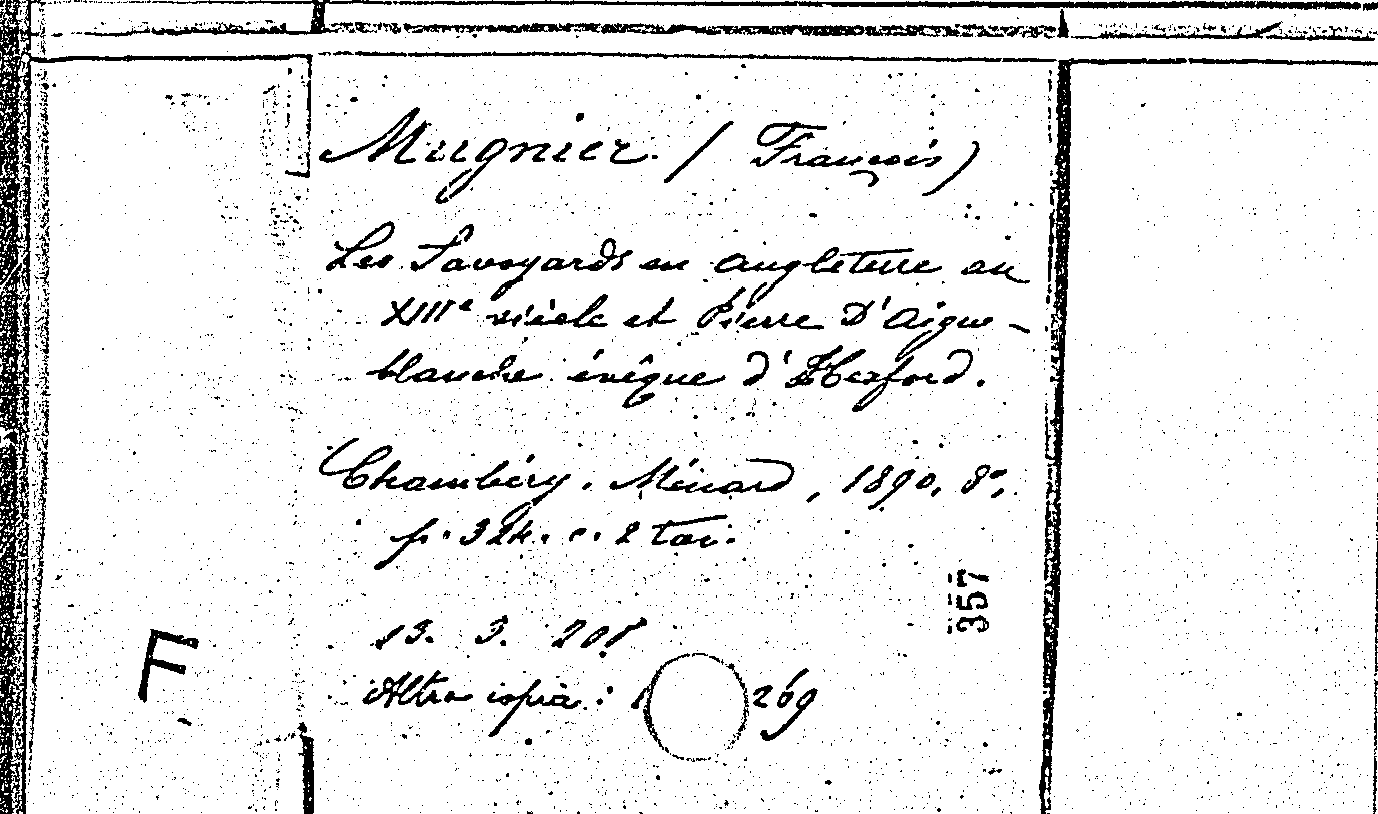 Mugnier. (François)
Les Savoyards en Angleterre au
XIIIe siècle et Pierre D'Aigue-
blanche évêque d'Hexford.
Chambéry. Ménard, 1890, 8°,
p. 324. c. 2 tav.
357
13. 3. 208
F
Altra copia: 1 269